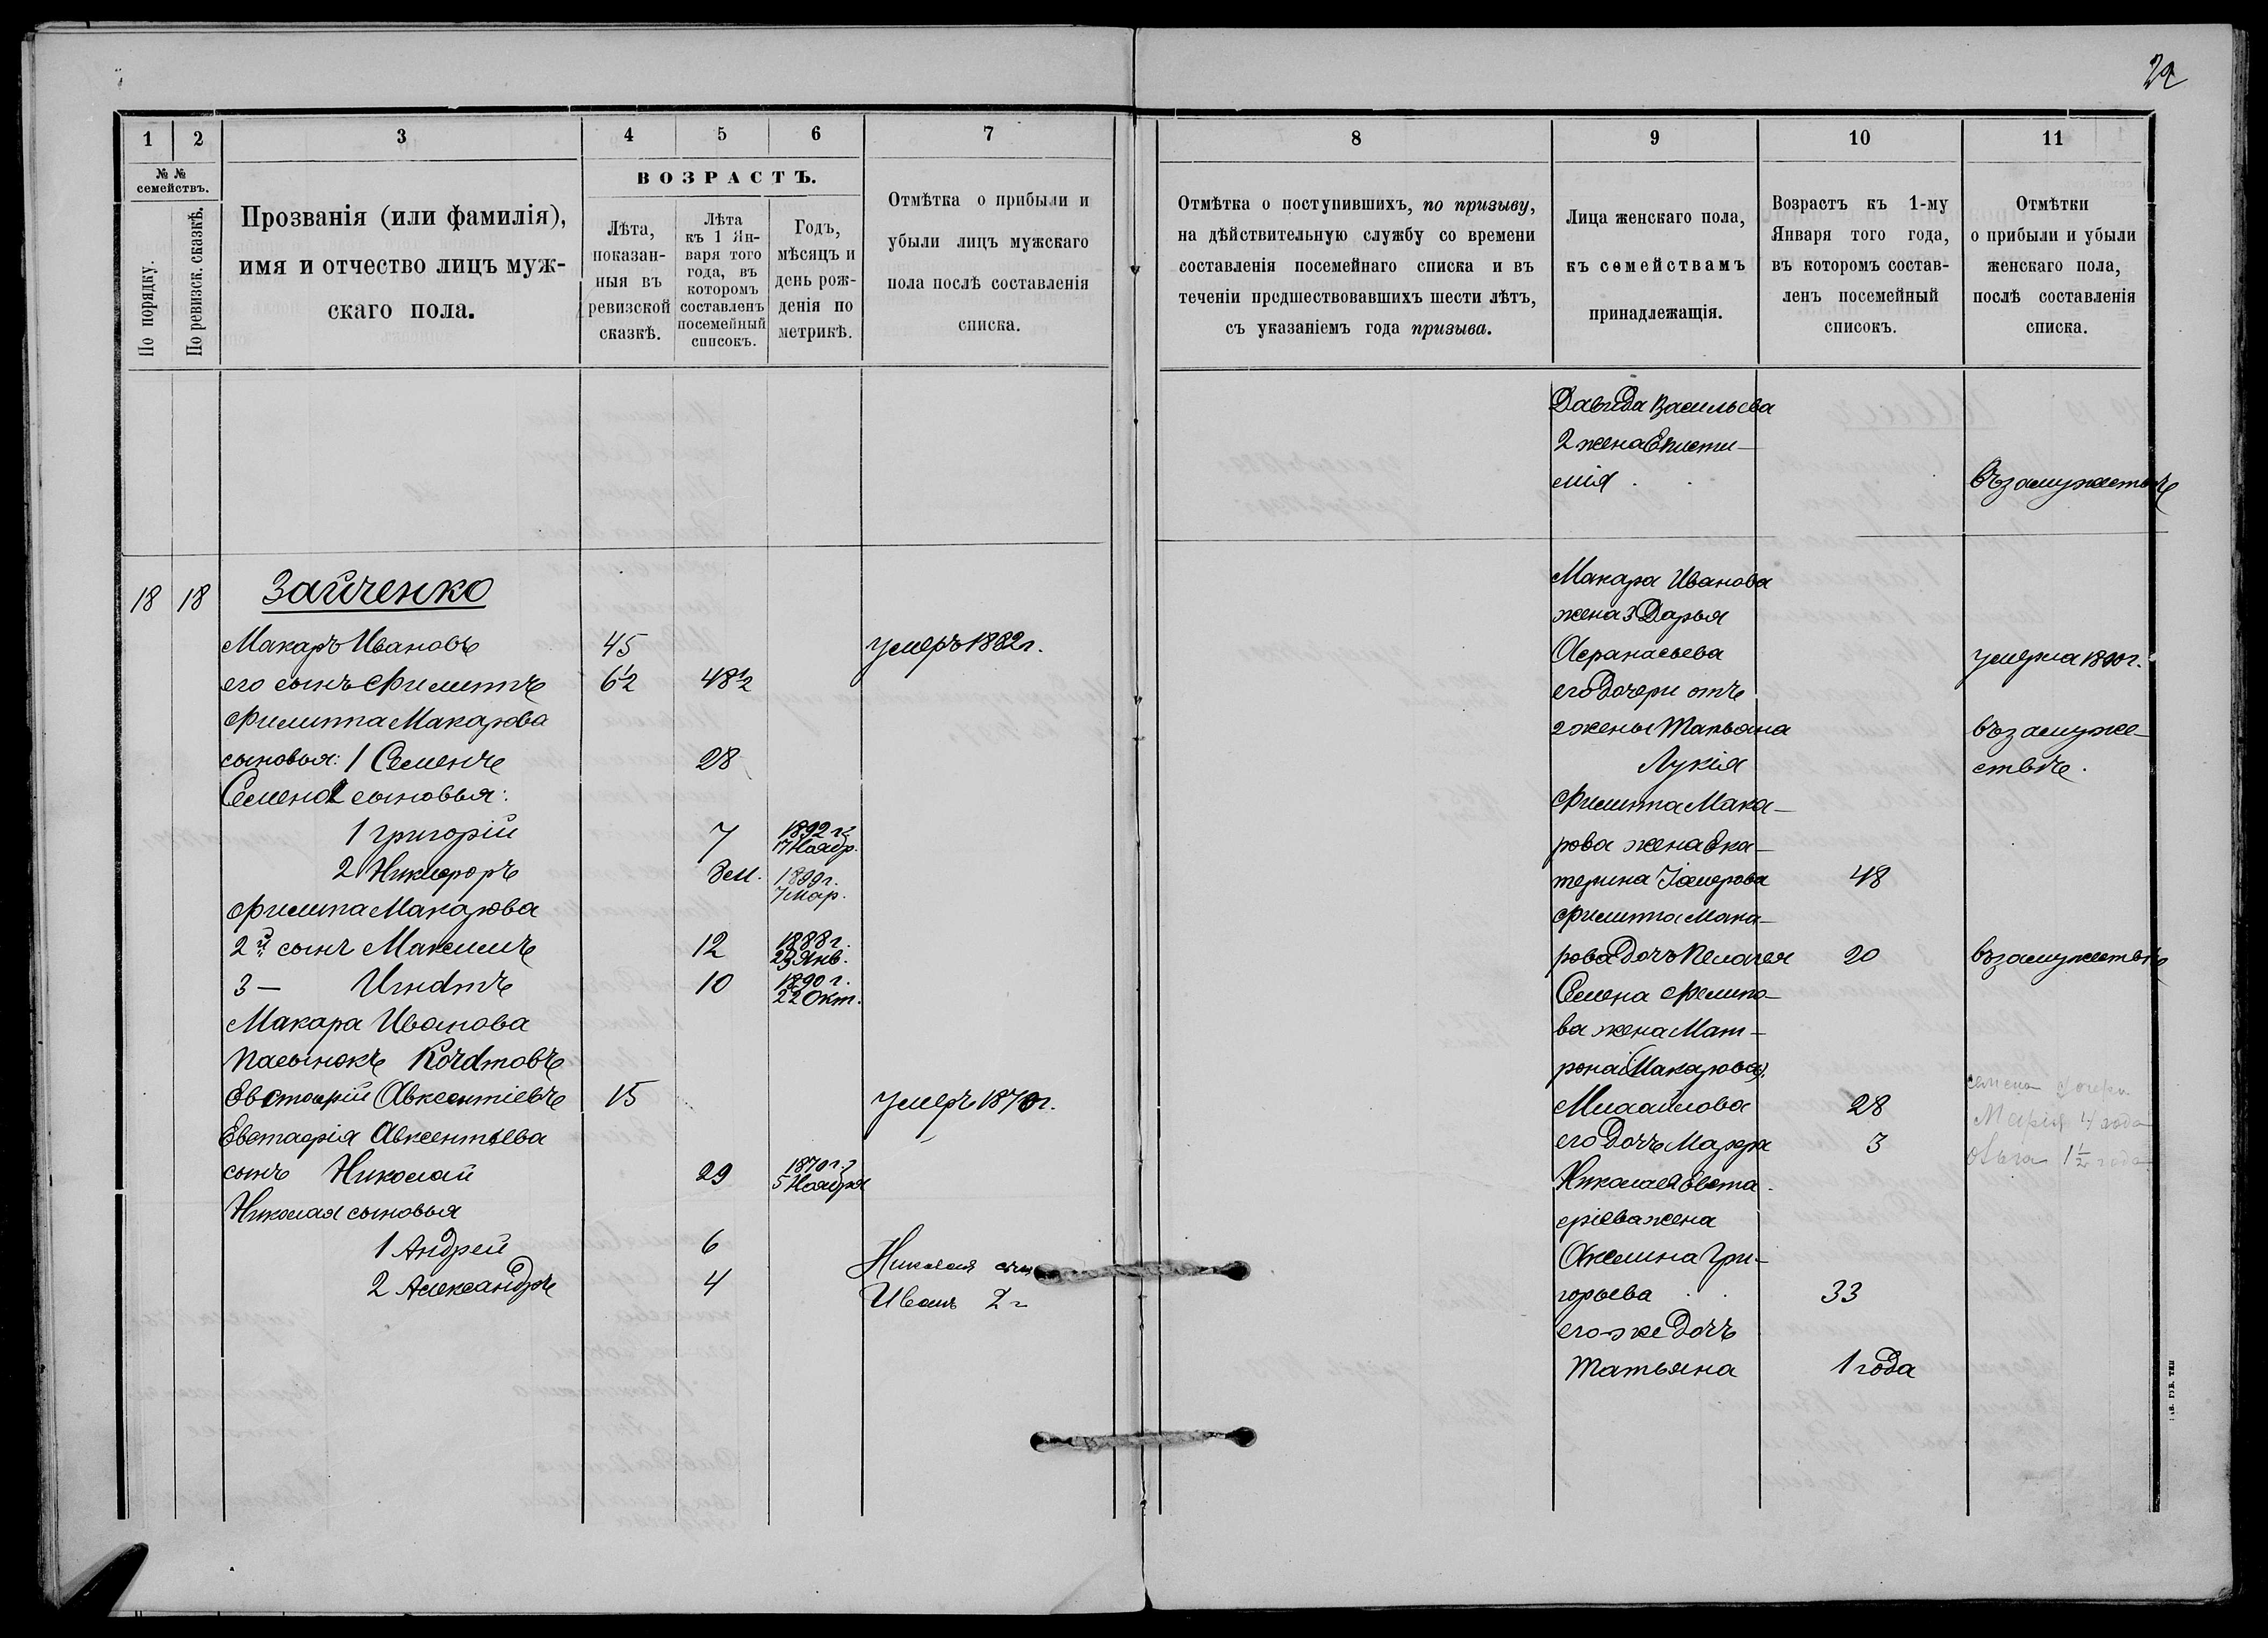 22
1
2
3
4
5
6
7
№ №
семействъ.
По порядку.
По ревизск. сказкѣ.
Прозванія (или фамилія),
имя и отчество лицъ муж-
скаго пола.
ВОЗРАСТЪ.
Лѣта,
показан-
ныя въ
ревизской
сказкѣ.
Лѣта
къ 1 Ян-
варя того
года, въ
которомъ
составленъ
посемейный
списокъ.
Годъ,
мѣсяцъ и
день рож-
денія по
метрикѣ.
Отмѣтка о прибыли и
убыли лицъ мужскаго
пола послѣ составленія
списка.
18 18 Зайченко
Макаръ Ивановъ 45 умеръ 1882 г.
его сынъ Филиппъ 6½ 48½
Филиппа Макарова
сыновья: 1 Семенъ 28
Семена сыновья:
1 Григорій 7 1892 г. 17 Ноябр.
2 Никифоръ 8 м. 1899 г. 7 мар.
Филиппа Макарова
2й сынъ Максимъ 12 1888 г. 29 Янв.
3 — Игнатъ 10 1890 г. 22 Окт.
Макара Иванова
пасынокъ Кочатовъ
Евстафій Авксентіевъ 15 умеръ 1870 г.
Евстафія Авксентьева
сынъ Николай 29 1870 г. 5 Ноября
Николая сыновья
1 Андрей 6
2 Александръ 4
Николая сын
Иванъ 2 г
8
9
10
11
Отмѣтка о поступившихъ, по призыву,
на дѣйствительную службу со времени
составленія посемейнаго списка и въ
теченіи предшествовавшихъ шести лѣтъ,
съ указаніемъ года призыва.
Лица женскаго пола,
къ семействамъ
принадлежащія.
Возрастъ къ 1-му
Января того года,
въ которомъ состав-
ленъ посемейный
списокъ.
Отмѣтки
о прибыли и убыли
женскаго пола,
послѣ составленія
списка.
Давида Васильева
2 жена Еписти-
мія въ замужествѣ
Макара Иванова
жена 3 Дарья
Афанасьева умерла 1890 г.
его дочери отъ
2 жены Татьяна въ замуже-
Лукія ствѣ.
Филиппа Мака-
рова жена Ека-
терина 48
Филиппа Мака-
рова дочь Пелагея 20 въ замужествѣ
Семена Филипо-
ва жена Мат-
рона (Макарова)
Михайлова 28
его дочь Марфа 3
семена дочери
Марія 4 года
Ольга 1½ года
Николая Евста-
фіева жена
Акилина Гри-
горьева 33
его-же дочь
Татьяна 1 года